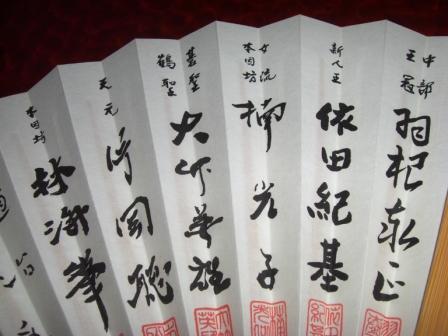 中部
王冠
羽根泰正
新人王
依田紀基
女流
本因坊
楠光子
碁聖
鶴聖
大竹英雄
天元
片岡聡
本因坊
林海峯